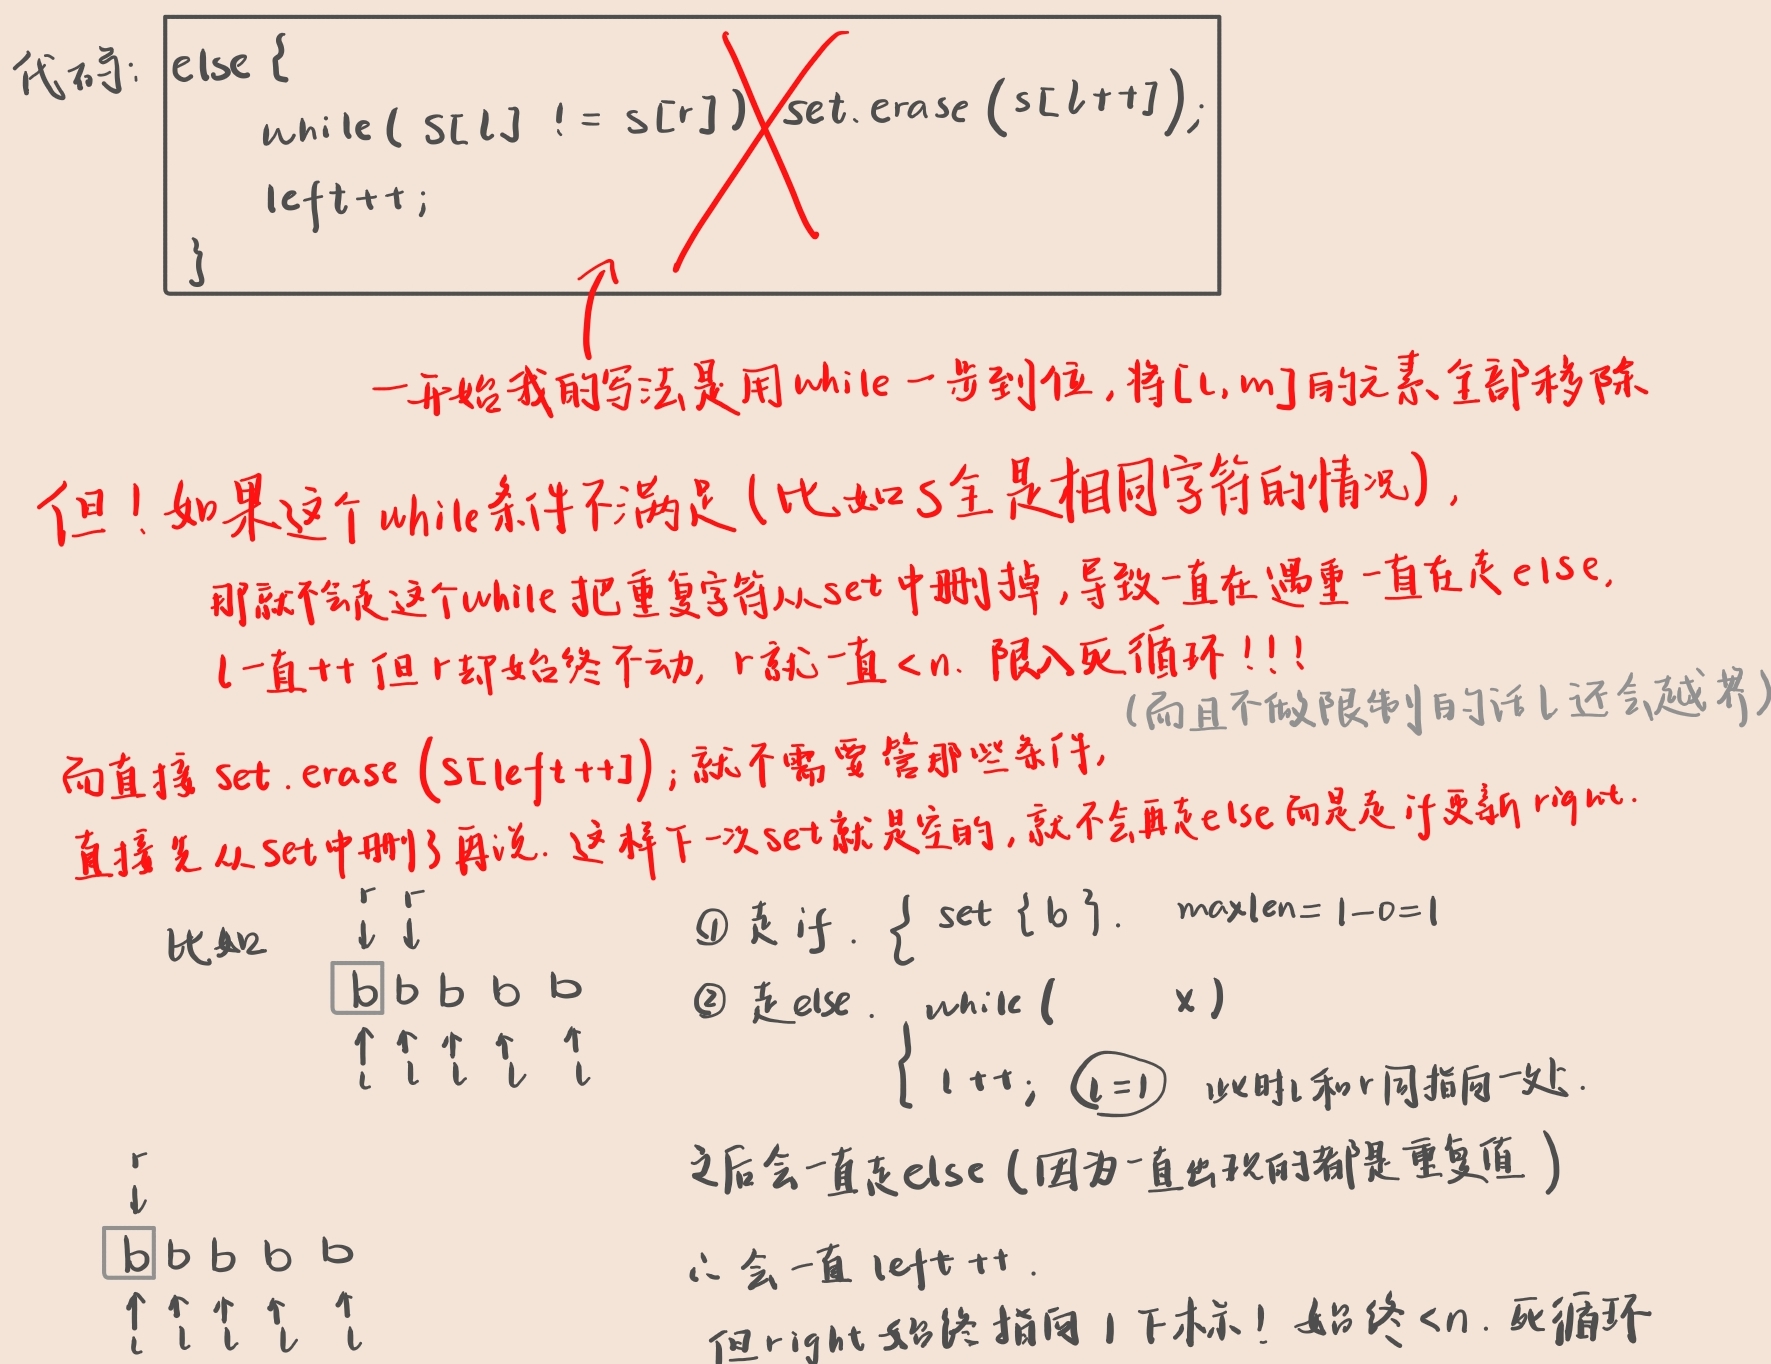 代码: else {
while( s[l] != s[r]) set.erase (s[l++]);
left++;
}
一开始我的写法是用while一步到位,将[l,m]的元素全部移除
但!如果这个while条件不满足(比如s全是相同字符的情况),
那就不会走这个while把重复字符从set中删掉,导致一直在遇重一直在走else,
l一直++但r却始终不动, r就一直<n. 限入死循环!!!
(而且不做限制的话l还会越界)
而直接 set.erase (s[left++]); 就不需要管那些条件,
直接先从set中删了再说. 这样下一次set就是空的,就不会再走else而是走if更新right.
r r
比如
↓ ↓
b b b b b
↑ ↑ ↑ ↑ ↑
l l l l l
① 走 if. { set {b}. maxlen = 1-0=1
② 走else. while( x)
{ l++; l=1 此时l和r同指向一处.
之后会一直走else (因为一直出现的都是重复值)
∴ 会一直 left ++.
但right始终指向 1 下标! 始终<n. 死循环
r
↓
b b b b b
↑ ↑ ↑ ↑ ↑
l l l l l